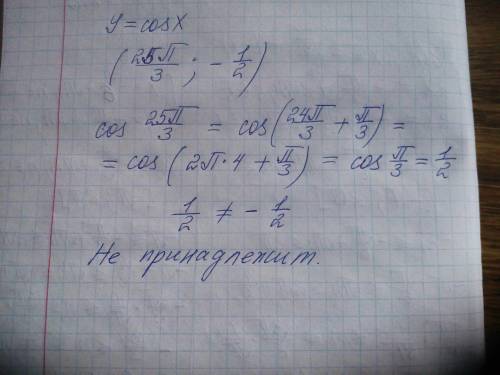 y = cos x
(25π/3 ; - 1/2)
cos 25π/3 = cos(24π/3 + π/3) =
= cos(2π·4 + π/3) = cos π/3 = 1/2
1/2 ≠ - 1/2
Не принадлежит.